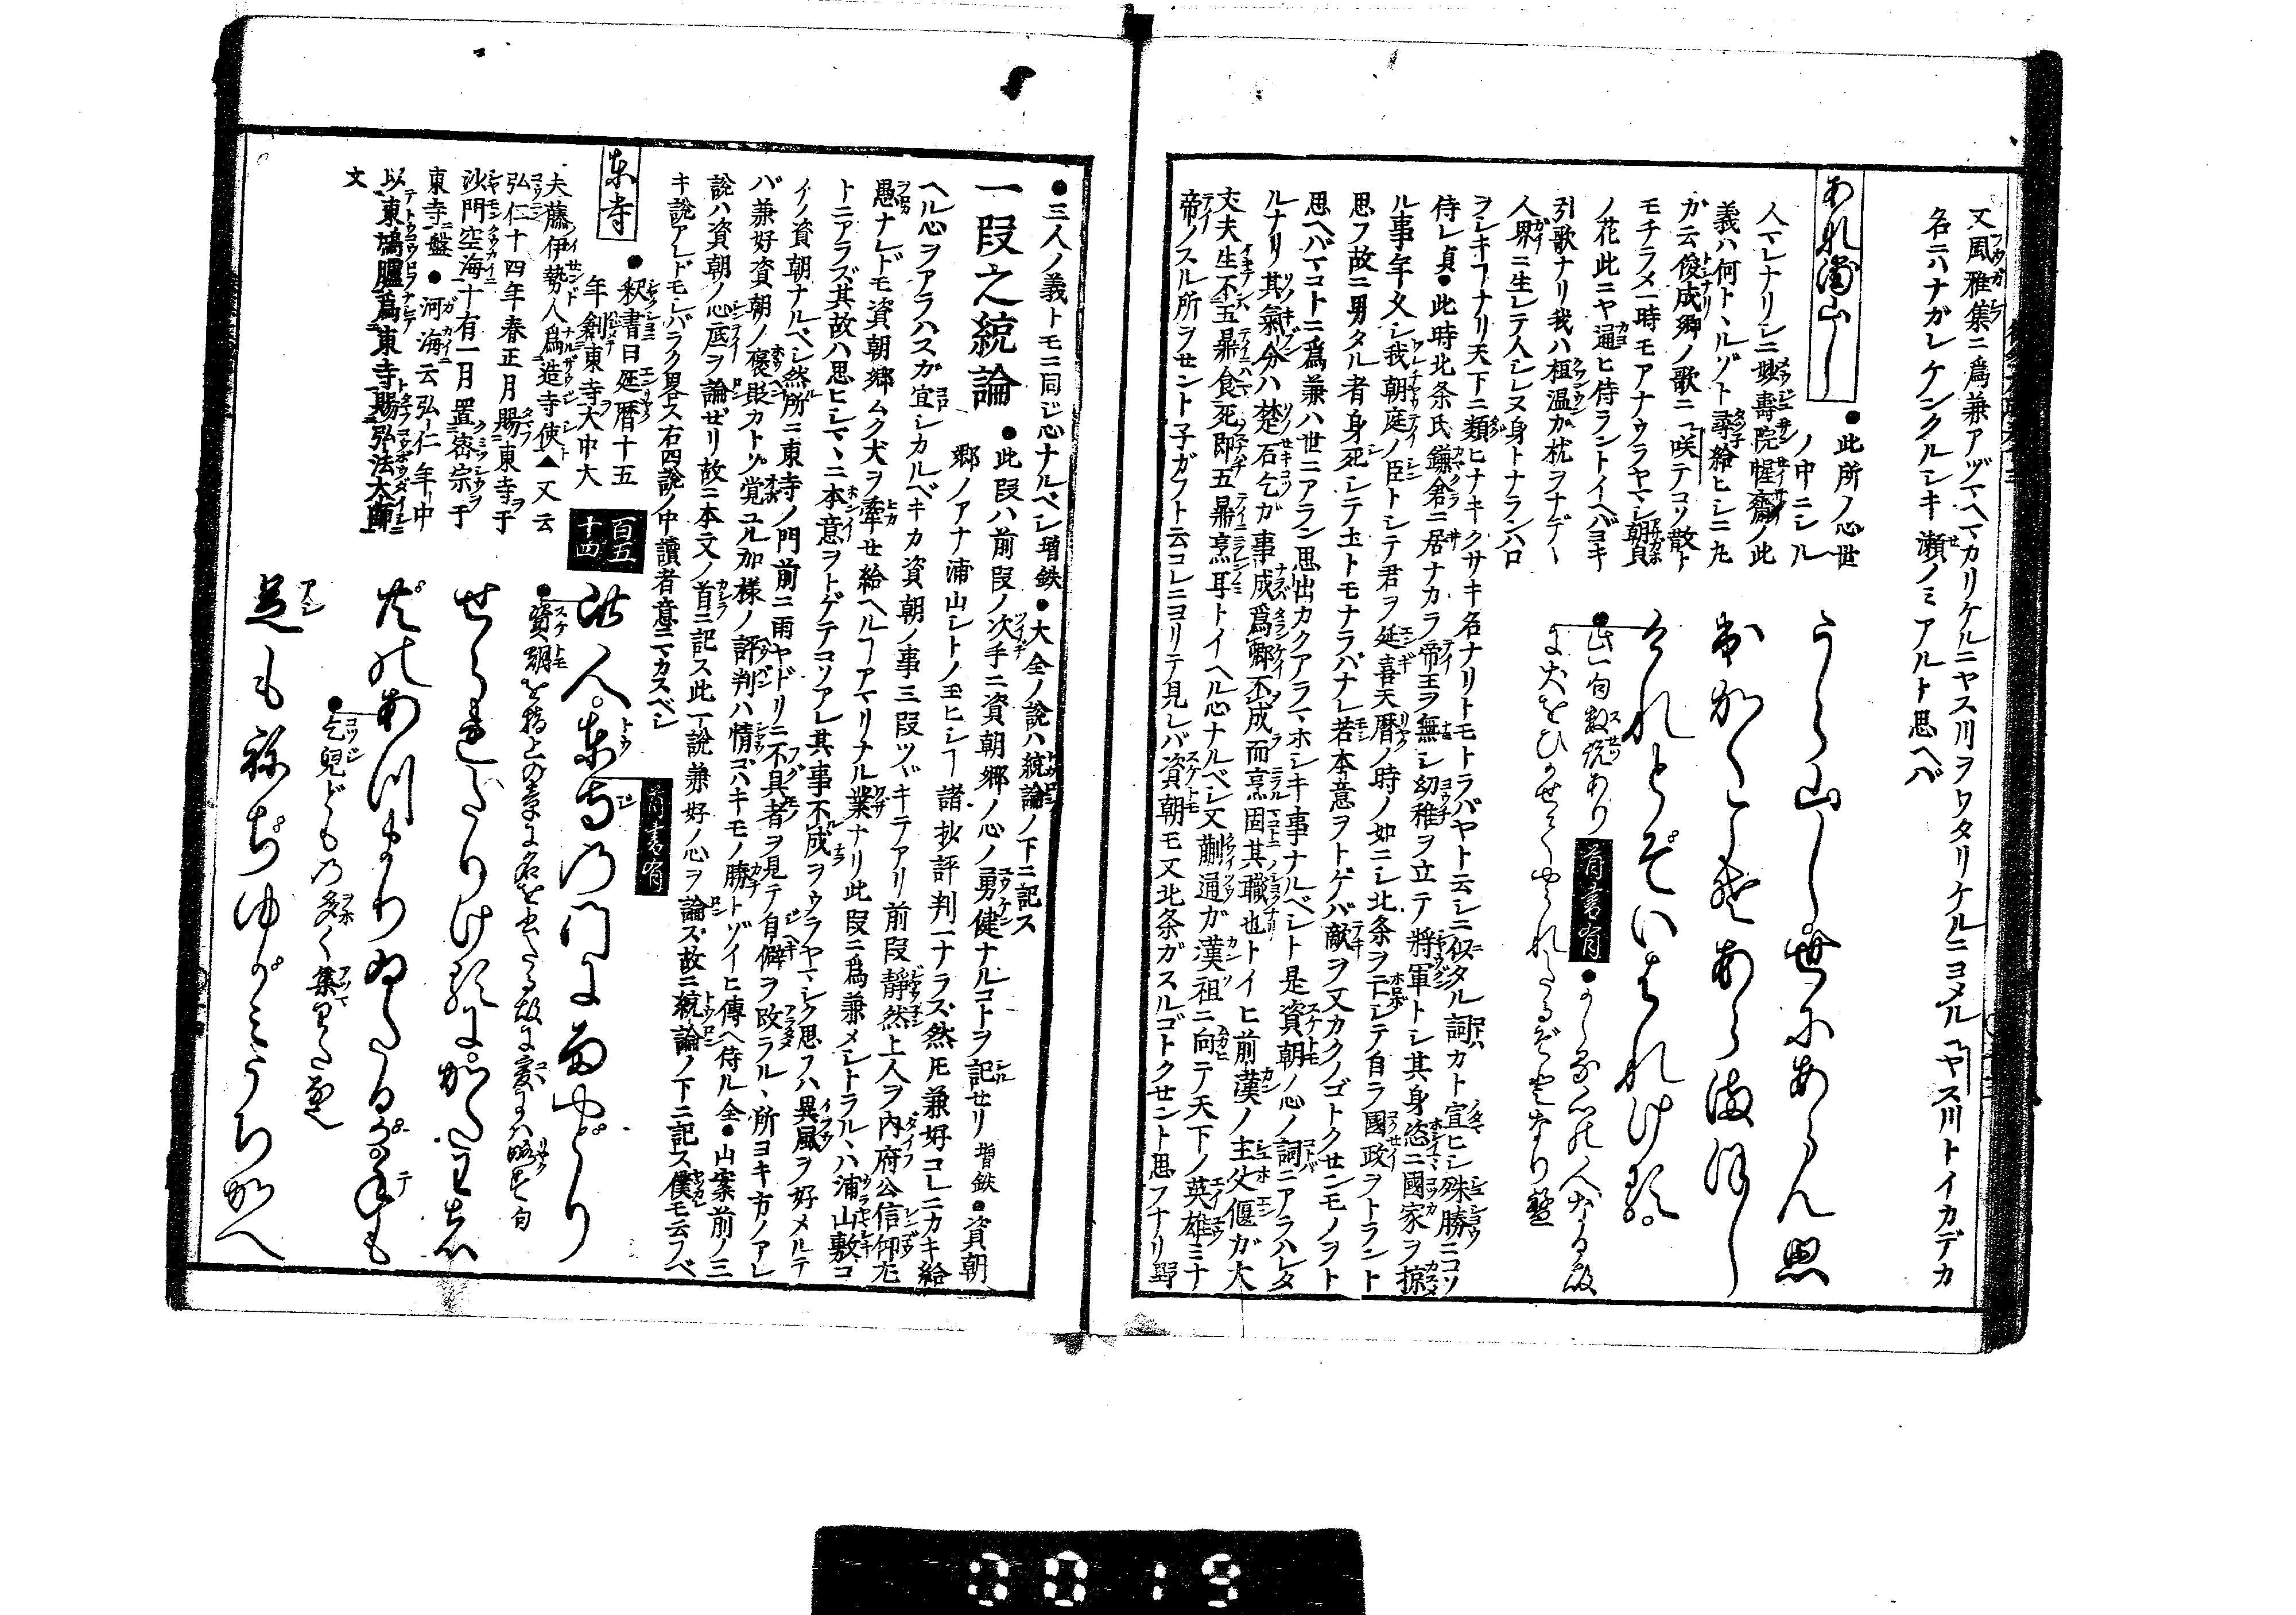 又風雅集ニ爲兼アヅマヘマカリケルニヤス川ヲワタリケルニヨメル ヤス川トイカデカ
名ニハナガレケンクルシキ瀬ノミアルト思ヘバ
あれ浦山し
●此所ノ心世
ノ中ニシル
人マレナリシニ妙壽院惺齋ノ此
義ハ何トヽルゾト尋給ヒシニ丸
カ云俊成卿ノ歌ニ咲テコソ散ト
モチラメ一時モアナウラヤマシ朝㒵
ノ花此ニヤ通ヒ侍ラントイヘバヨキ
引歌ナリ我ハ桓温カ枕ヲナデヽ
人界ニ生レテ人シレヌ身トナランハ口
うら山し世にあらん思
出かくこそあらまほし
けれとぞいはれける
●此一句数説あり
首書有
ヲシキ事ナリ天下ニ類ヒナキクサキ名ナリトモトラバヤト云シニ似タル詞カト宣ヒシ殊勝ニコソ
侍レ貞●此時北条氏鎌倉ニ居ナカラ帝王ヲ無シ幼稚ヲ立テ將軍トシ其身恣ニ國家ヲ掠
ル事年久シ我朝庭ノ臣トシテ君ヲ延喜天暦ノ時ノ如ニシ北条ヲ亡シテ自ラ國政ヲトラント
思フ故ニ男タル者身死シテ玉トモナラバナレ若本意ヲトゲバ敵ヲ又カクノゴトクセンモノヲト
思ヘバマコトニ爲兼ハ世ニアラン思出カクアラマホシキ事ナルベシト是資朝ノ心ノ詞ニアラハレタ
ルナリ其氣分ハ楚石乞が事成爲卿不成而烹固其職也トイヒ前漢ノ主父偃ガ大
丈夫生不五鼎食死即五鼎烹耳トイヘル心ナルベシ又蒯通ガ漢祖ニ向テ天下ノ英雄ミナ
帝ノスル所ヲセント子ガフト云コレニヨリテ見レバ資朝モ又北条ガスルゴトクセント思フナリ野
●三人ノ義トモニ同じ心ナルベシ増鉄●大全ノ說ハ統論ノ下ニ記ス
一段之統論
●此段ハ前段ノ次手ニ資朝郷ノ心ノ勇健ナルコトヲ記せリ増鉄●資朝
郷ノアナ浦山シトノ玉ヒシ事諸抄評判一ナラズ然𪜈兼好コレニカキ給
ヘル心ヲアラハスガ宜シカルベキカ資朝ノ事三段ツヾキテアリ前段靜然上人ヲ內府公信仰尤
愚ナレドモ資朝郷ムク犬ヲ牽せ給ヘル事アマリナル業ナリ此段ニ爲兼メシトラルヽハ浦山敷コ
トニアラズ其故ハ思ヒシマヽニ本意ヲトゲテコソアレ其事不成ヲウラヤマシク思フハ異風ヲ好メルテ
イノ資朝ナルベシ然所ニ東寺ノ門前ニ雨ヤドリニ不具者ヲ見テ自僻ヲ改ラルヽ所ヨキ方ノアレ
バ兼好資朝ノ褒貶カトゾ覚ユル加様ノ評判ハ情ゴハキモノ勝トゾイヒ傳ヘ侍ル全●山案前ノ三
說ハ資朝ノ心底ヲ論ぜリ故ニ本文ノ首ニ記ス此一說兼好ノ心ヲ論ズ故ニ統論ノ下ニ記ス僕モ云フベ
キ說アレドモシバラク畧ス右四說ノ中讀者意ニマカスベシ
東寺
●釈書曰延暦十五
年創東寺大中大
夫藤伊勢人爲造寺使▲又云
弘仁十四年春正月賜東寺ヲ于
沙門空海十有一月置密宗于
東寺盤●河海云弘仁年中
以東鴻臚爲東寺賜弘法大師
文
百五十四
首書有
此人東寺の門に雨やどり
●資朝を指上の章に名を出たる故に爰には略す句
せられたりけるに。かたは者
共のあつまりゐたるが。手も
●乞児どもの多く集りたる
足もねぢゆがみうちかへ